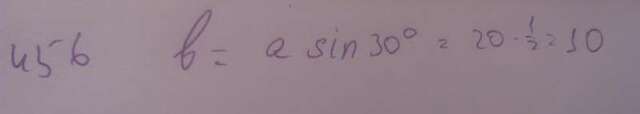 456 b = a sin 30° = 20 · 1/2 = 10